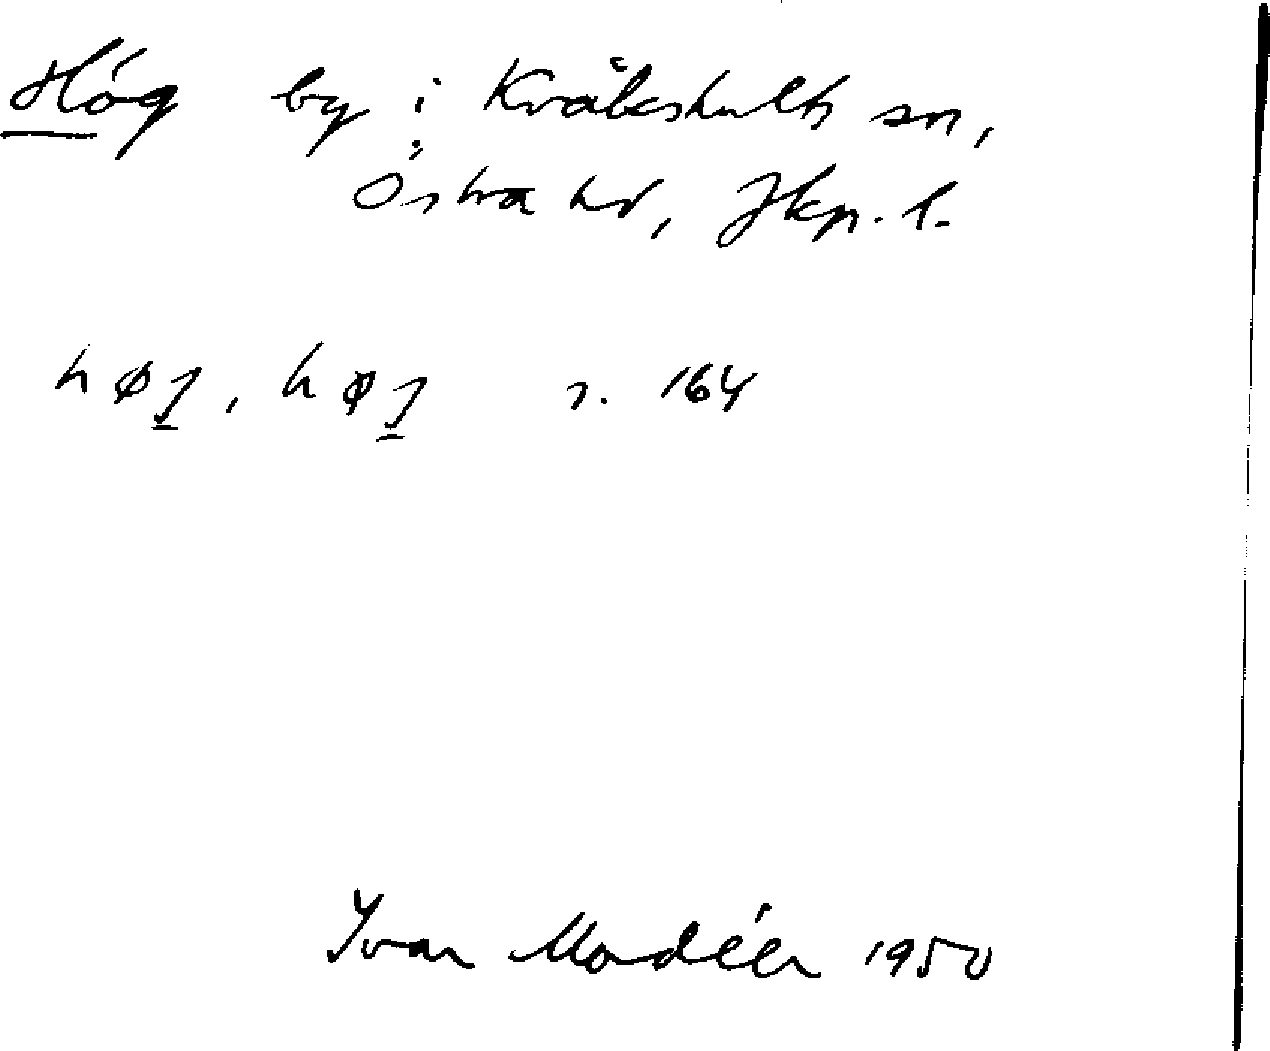 Hög by i Kråkshults sn,
Östra hd, Jkp. l.
høȷ, høȷ s. 164
Ivar Modéer 1950